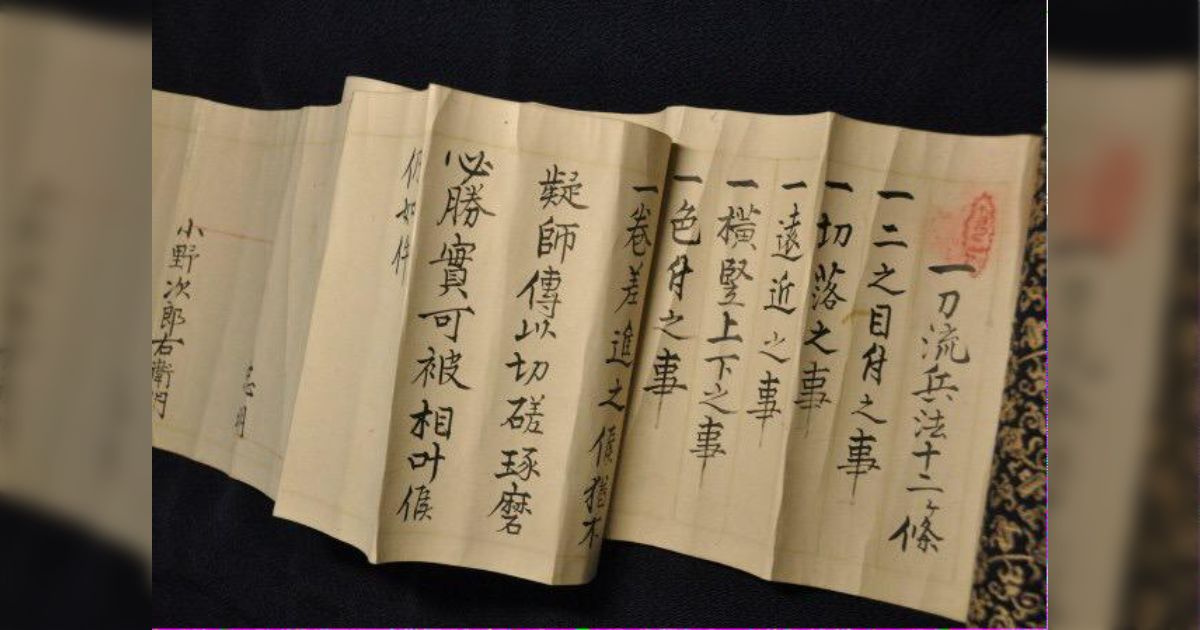 一刀流兵法十二ヶ條
一二之目付之事
一切落之事
一遠近之事
一橫竪上下之事
一色付之事
一卷差進之候猶不
疑師傳以切磋琢磨
必勝實可被相叶候
仍如件
小野次郎右衛門